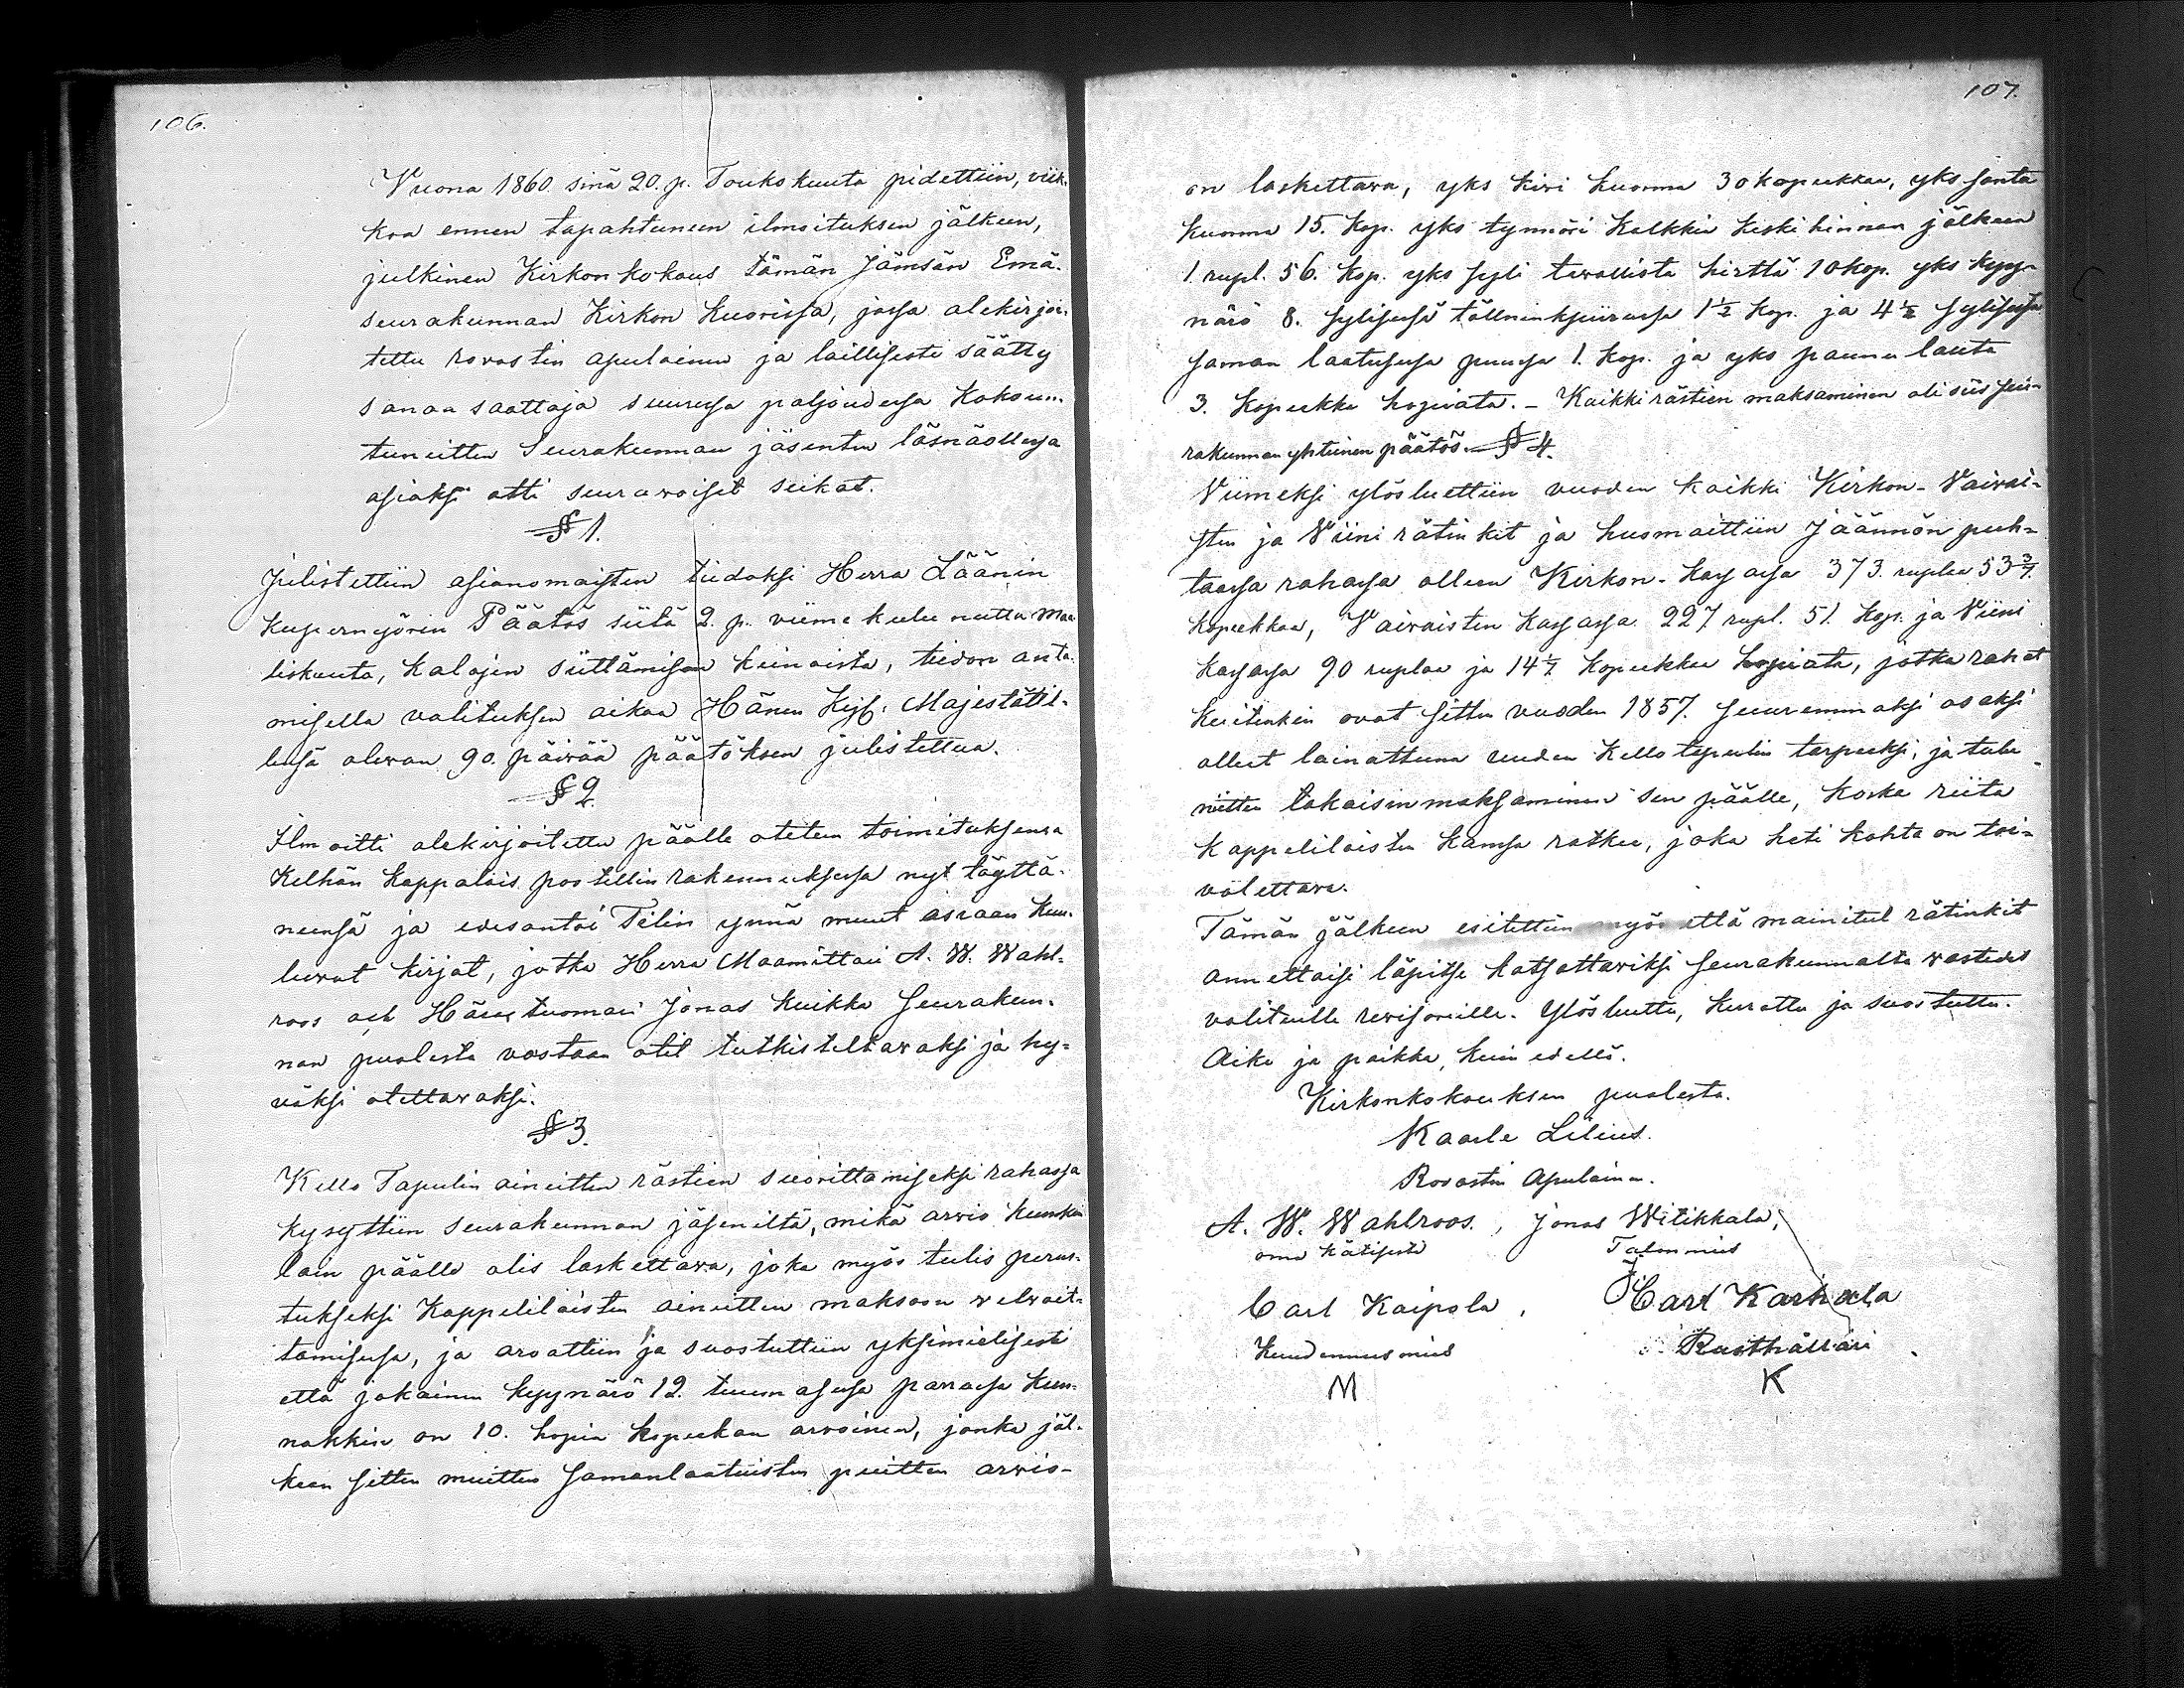 106.
Vuona 1860 sinä 20. p. Toukokuuta pidettiin, viik-
koa ennen tapahtuneen ilmoituksen jälkeen,
julkinen Kirkon kokous tämän Jämsän Emä-
seurakunnan Kirkon Kuorissa, jossa alekirjoi-
tettu rovastin apulainen ja laillisesti säätty
sanan saattaja suuressa paljoudessa Kokoun-
tuneitten Seurakunnan jäsenten läsnäollessa
asiaksi otti seuraavaiset seikat.
§ 1.
Julistettiin asianomaisten tiedoksi Herra Läänin
Kupernyörin Päätös siitä 2. p. viime kulu neitta Maa
liskuuta, kalojen siittämisen keinoista, tiedon anta-
misella valituksen aikaa Hänen Keis: Majestätil-
lensä olevan 90. päivää päätöksen julistettua.
§ 2.
Ilmoitti alekirjoitettu päälle otetun toimituksensa
Kelhän kappalais postellin rakennuksessa nyt täyttä-
neensä ja edesantoi Tilin ynnä muut asiaan kuu-
luwat kirjat, jotka Herra Maamittari A. W. Wahl-
roos ach Härastuomari Jonas Kuikka Seurakun-
nan puolesta vastaan otit tutkisteltavaksi ja hy-
väksi otettavaksi.
§ 3.
Kello Tapulin aineitten rästien suorittamiseksi rahassa
kysyttiin seurakunnan jäseniltä, mikä arvio kunkin
lain päälle olis laskettawa, joka myös tulis perus-
tukseksi Kappeliläisten aineitten maksoon welvoit-
tamisessa, ja arvattiin ja suostuttiin yksimielisesti
että jokainen kyynärö 12. tuumasessa parrussa kun-
nakkin on 10. hopia kopeekan arvoinen, jonka jäl-
keen sitten muitten samanlaatuisten puitten arwio-
107.
on laskettava, yks kiwi kuorma 30 kopeekkaa, yks santa
kuorma 15. kop. yks tynnöri Kalkkia keski hinnan jälkeen
1. rupl. 56. kop. yks syli tavallista hirttä 10 kop. yks kyy-
närö 8. sylisessä tällninkpiirussa 1½ kop. ja 4½ sylisessä
saman laatusessa puussa 1. kop. ja yks paunu lauta
3. kopeekka hopiata. - Kaikki rästien maksaminen oli siis seu-
rakunnan yhteinen päätös. § 4.
Viimeksi ylösluettiin vuoden kaikki Kirkon- Vaivai-
sten ja Viini rätinkit ja huomaittiin Jäännön puh-
taassa rahassa olleen Kirkon- kassassa 373. ruplaa 53 3/7.
kopeekkaa, Vaivaisten kassassa 227 rupl. 51. kop. ja Viini
kassassa 90 ruplaa ja 14½ kopeekkaa hopiata, jotka rahat
kuitenkin ovat sitten vuoden 1857. suuremmaksi osaksi
olleet lainattuna uuden Kellotapulin tarpeeksi, ja tule
niitten takaisinmaksaminen sen päälle, koska riita
kappeliläisten kanssa ratkee, joka heti kohta on toi-
völettava.
Tämän jälkeen esitettiin myös että mainitut rätinkit
annettaisi läpitse katsottaviksi seurakunnalta wasteeks
valituille revisoreille. Ylösluettu, kurattu ja suostuttu.
Aika ja paikka, kuin edellä.
Kirkonkokouksen puolesta.
Kaarle Lilius.
Rovastin Apulainen.
A. W. Wahlroos., Jonas Witikkala,
oma kätisesti Talon mies
Carl Kaipola, Carl Karhula
Kuudennusmies Rusthållari
M K